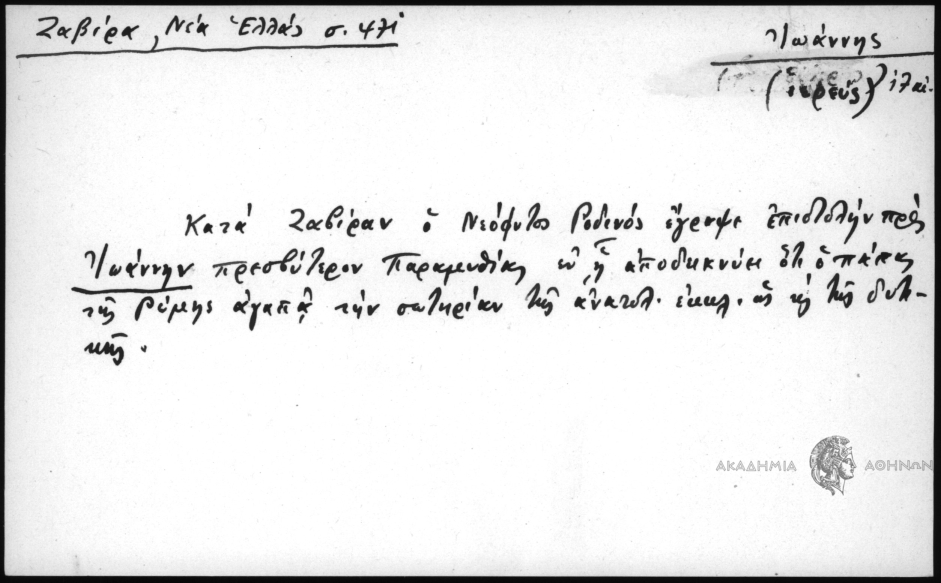 Ζαβίρα, Νέα Ἑλλάς σ. 471
Ἰωάννης
(ἱερεύς) ιζ αἰ.
Κατά Ζαβίραν ὁ Νεόφυτος Ροδινός ἔγραψε ἐπιστολήν πρός
Ἰωάννην πρεσβύτερον Παραμυθίας ἐν ᾗ ἀποδεικνύει ὅτι ὁ πάπας
τῆς Ρώμης ἀγαπᾷ τήν σωτηρίαν τῆς ἀνατολ. ἐκκλ. ὡς καί τῆς δυτι-
κῆς.
ΑΚΑΔΗΜΙΑ ΑΘΗΝΩΝ